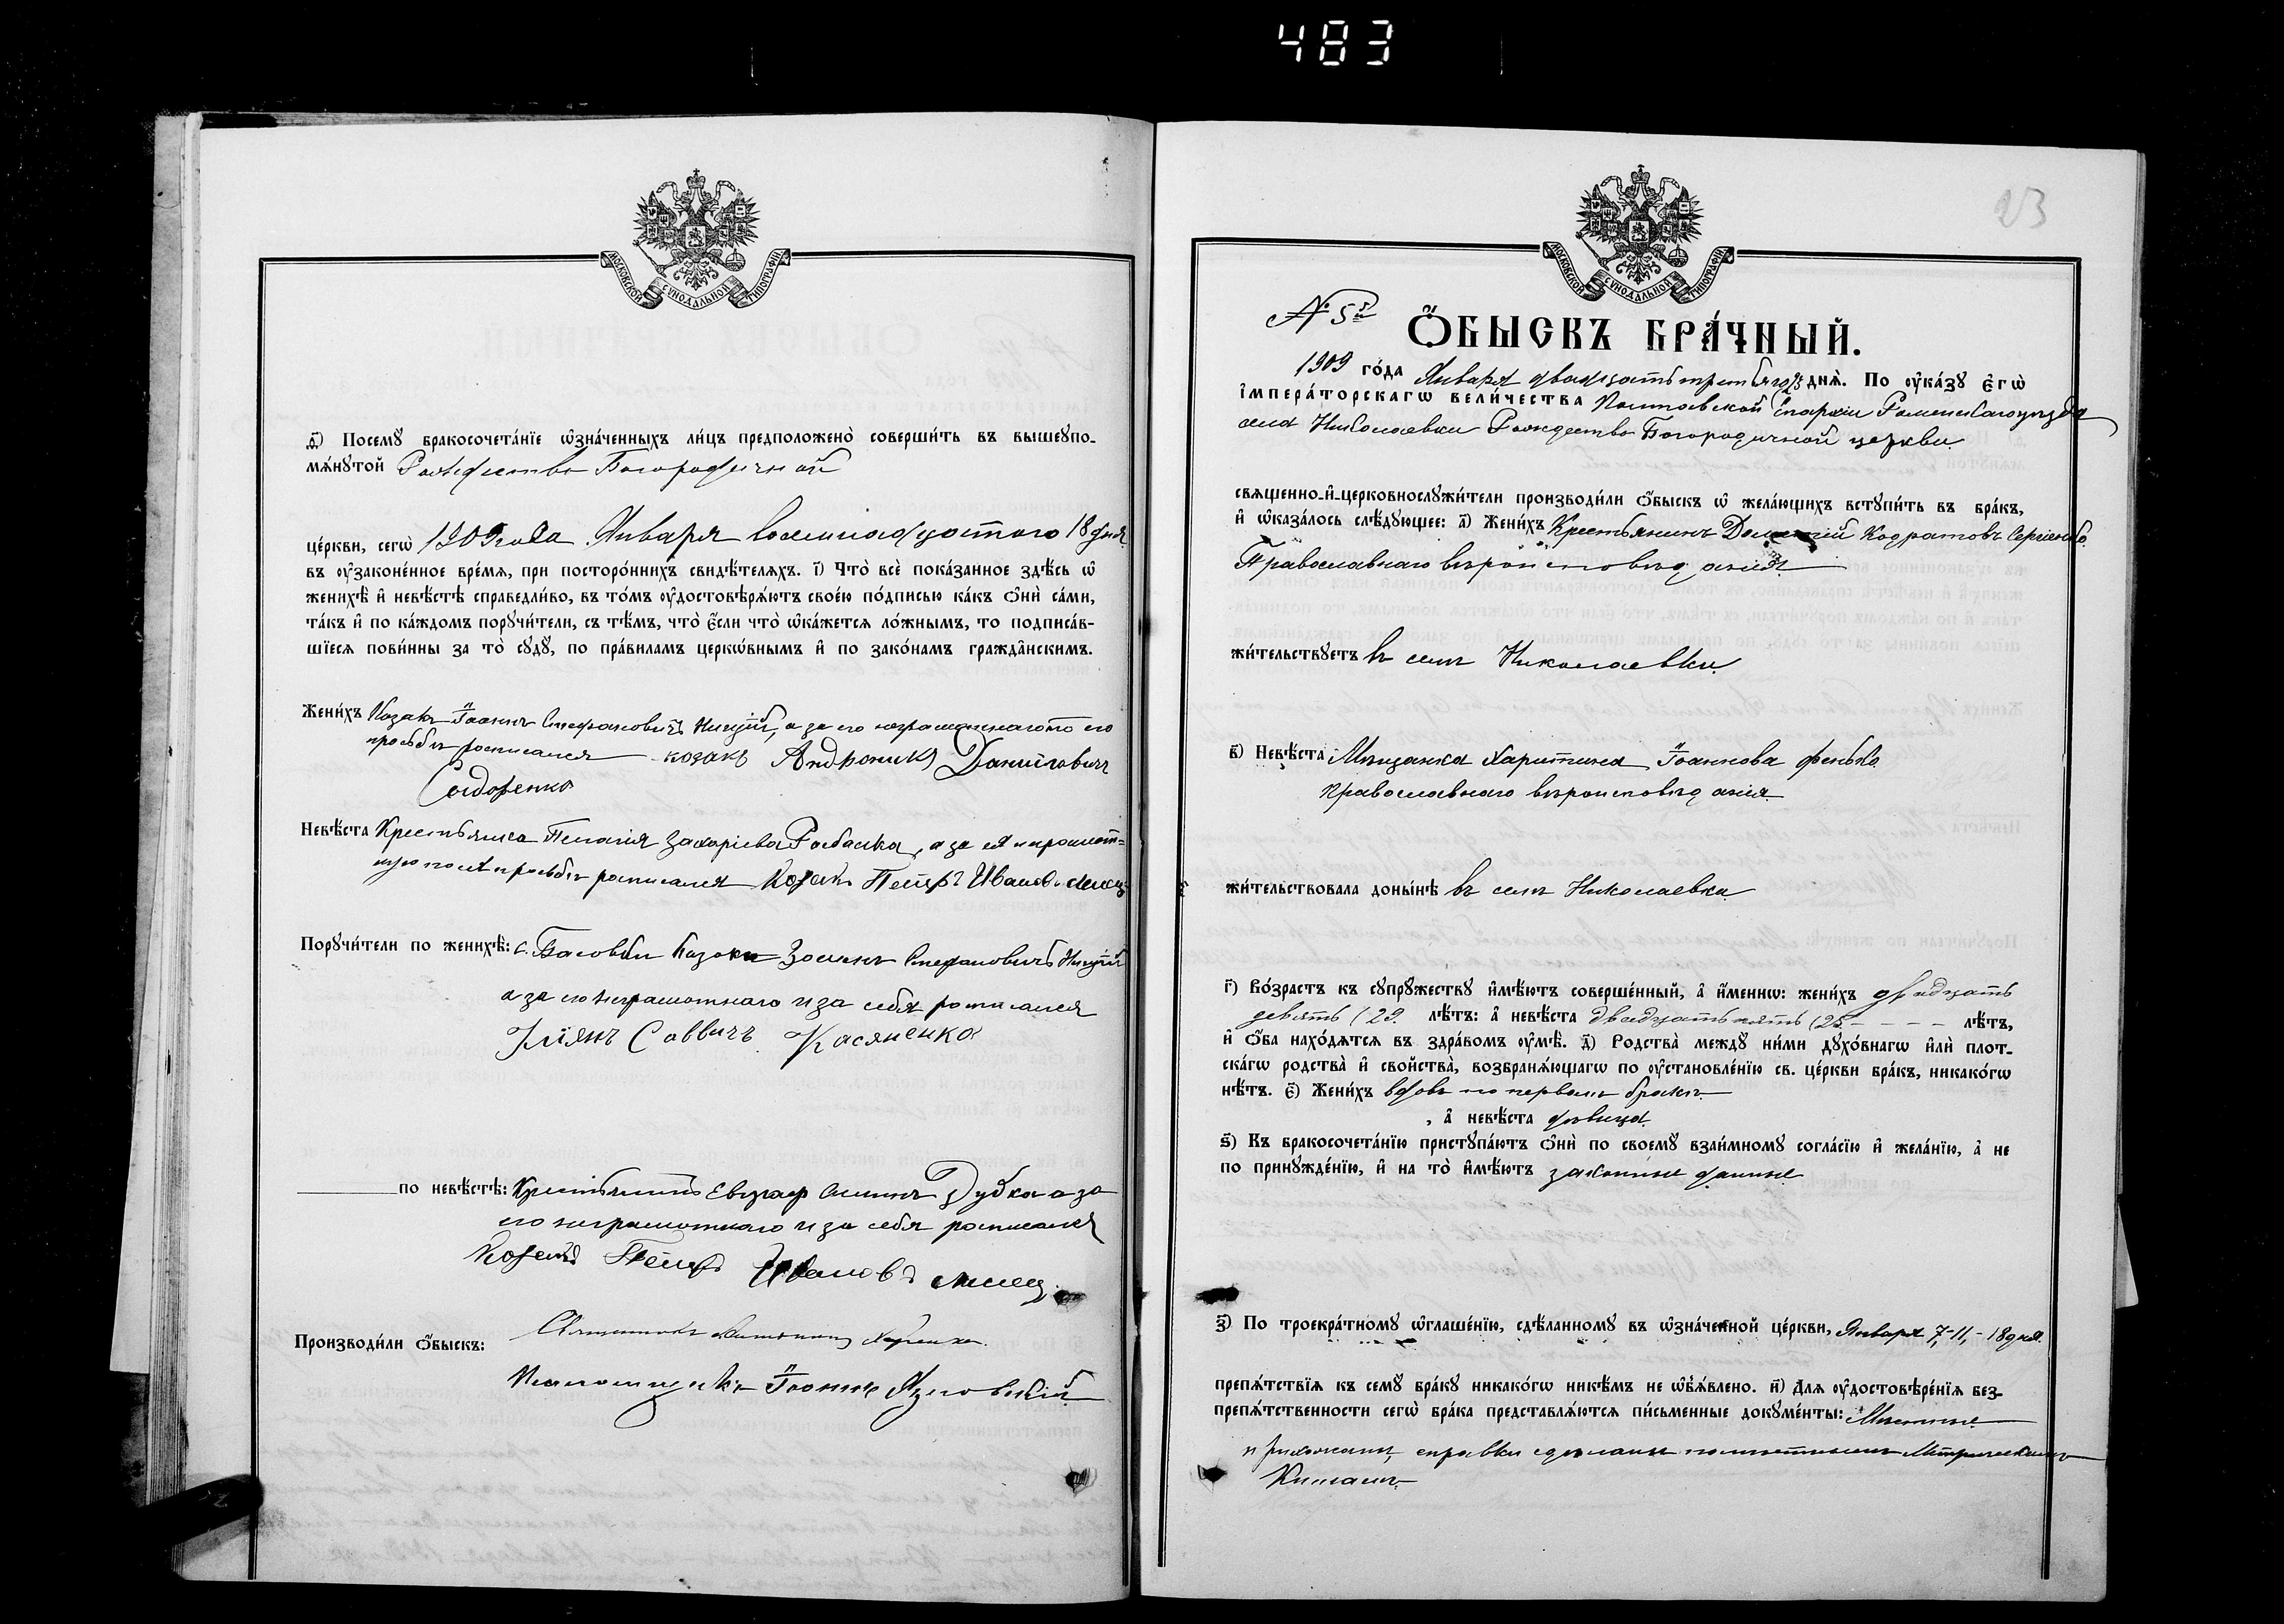 483
МОСКОВСКОЙ СѴНОДАЛЬНОЙ ТИПОГРАФІИ
ѳ҃) Посемꙋ̀ бракосочета́нїе ѡ҆зна́ченныхъ ли́цъ предположено̀ соверши́ть въ вышеꙋпо-
мѧ́нꙋтой Рождество Богородичной
це́ркви, сегѡ̀ 1909 года Января восемнадцатого 18 дня
въ ᲂу҆зако́ненное вре́мѧ, при посторо́ннихъ свидѣ́телѧхъ. і҃) Что̀ всѐ пока́занное здѣ́сь ѡ҆
женихѣ̀ и҆ невѣ́стѣ справедли́во, въ то́мъ ᲂу҆достовѣрѧ́ютъ свое́ю по́дписью ка́къ ѻ҆нѝ са́ми,
та́къ и҆ по ка́ждомъ порꙋчи́тели, съ тѣ́мъ, что̀ є҆́сли что̀ ѡ҆ка́жетсѧ ло́жнымъ, то подписа́в-
шїесѧ пови́нны за то̀ сꙋдꙋ̀, по пра́виламъ церко́внымъ и҆ по зако́намъ гражда́нскимъ.
Жени́хъ Козакъ Іоаннъ Стефановичъ Нищій, а за его неграмотнаго по его
просьбѣ росписался козакъ Андроникъ Даниловичъ
Сидоренко
Невѣ́ста Крестьянка Пелагія Захаріева Рыбалка, а за ея неграмот-
ную по ея просьбѣ росписался Козакъ Петръ Ивановъ
Порꙋчи́тели по женихѣ̀: с. Басовки Козаки Іоаннъ Стефановичъ Нищій
а за его неграмотнаго и за себя росписался
Іліянъ Саввичъ Касяненко
по невѣ́стѣ: Крестьянинъ Евграф Дубка а за
его неграмотнаго и за себя росписался
Козакъ Петръ Ивановъ
Производи́ли ѻ҆́быскъ: Священникъ
Псаломщикъ Іоаннъ
23
МОСКОВСКОЙ СѴНОДАЛЬНОЙ ТИПОГРАФІИ
№ 5й
Ѻ҆́БЫСКЪ БРА́ЧНЫЙ.
1909 го́да Января двадцать третьяго 23 днѧ̀. По ᲂу҆ка́зꙋ є҆гѡ̀
і҆мпера́торскагѡ вели́чества Полтавской Епархіи Роменскаго уѣзда
села Николаевки Рождество Богородичной церкви
свѧще́нно-и҆-церковнослꙋжи́тели производи́ли ѻ҆́быскъ ѡ҆ жела́ющихъ вступи́ть въ бра́къ,
и҆ ѡ҆каза́лось слѣ́дꙋющее: а҃) Жени́хъ Крестьянинъ Кодратовъ Сергіенко
Православнаго вѣроисповѣданія
жи́тельствꙋетъ въ селѣ Николаевки
в҃) Невѣ́ста Мѣщанка Харитина Іоаннова Фенько
православнаго вѣроисповѣданія
жи́тельствовала доны́нѣ въ селѣ Николаевка
г҃) Во́зрастъ къ сꙋпрꙋ́жествꙋ и҆мѣ́ютъ соверше́нный, а҆ и҆́меннѡ: жени́хъ двадцать
девять (29. лѣ́тъ: а҆ невѣ́ста двадцать пять (25 - - - - лѣ́тъ,
и҆ ѻ҆́ба нахо́дѧтсѧ въ здра́вомъ ᲂу҆мѣ̀. д҃) Родства̀ междꙋ̀ ни́ми дꙋхо́внагѡ и҆лѝ плот-
ска́гѡ родства̀ и҆ сво́йства̀, возбранѧ́ющагѡ по ᲂу҆становле́нїю св. це́ркви бра́къ, никако́гѡ
нѣ́тъ. є҃) Жени́хъ вдовъ по первомъ бракѣ
, а҆ невѣ́ста дѣвица
ѕ҃) Къ бракосочета́нїю пристꙋпа́ютъ ѻ҆нѝ по своемꙋ̀ взаи́мномꙋ согла́сїю и҆ жела́нїю, а҆ не
по принꙋжде́нїю, и҆ на то̀ и҆мѣ́ютъ законные данные
з҃) По троекра́тномꙋ ѡ҆глаше́нїю, сдѣ́ланномꙋ въ ѡ҆зна́ченной це́ркви, Января 7,-11,-18 дня
препѧ́тствїѧ къ семꙋ̀ бра́кꙋ никако́гѡ никѣ́мъ не ѡ҆б̾ѧ́влено. и҃) Длѧ ᲂу҆достовѣре́нїѧ без-
препѧ́тственности сегѡ̀ бра́ка представлѧ́ютсѧ пи́сьменные докꙋме́нты: Мѣстные
прихожане, справки сдѣланы по мѣстнымъ Метрическимъ
Книгамъ